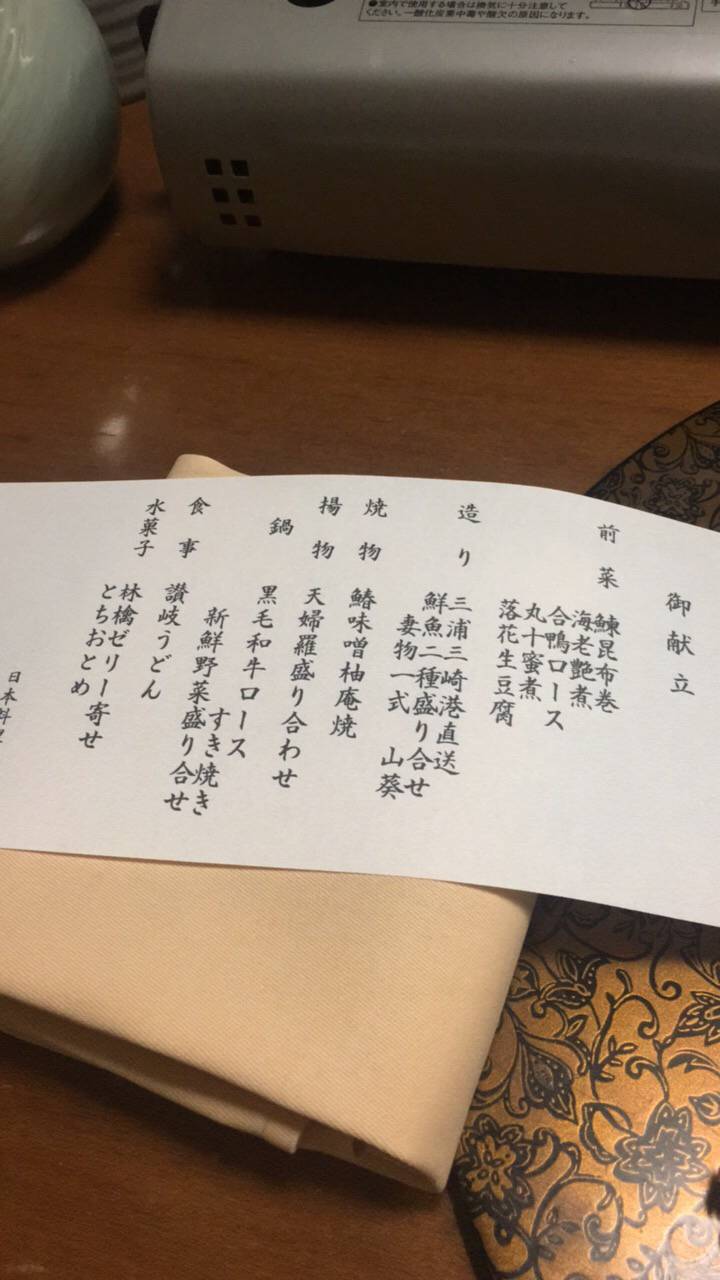 ●室内で使用する場合は換気に十分注意して
ください。一酸化炭素中毒や酸欠の原因になります。
御献立
前菜
鰊昆布巻
海老艶煮
合鴨ロース
丸十蜜煮
落花生豆腐
造り
三浦三崎港直送
鮮魚二種盛り合せ
妻物一式 山葵
焼物
鰆味噌柚庵焼
揚物
天婦羅盛り合わせ
鍋
黒毛和牛ロース
すき焼き
新鮮野菜盛り合せ
食事
讃岐うどん
水菓子
林檎ゼリー寄せ
とちおとめ
日本料理